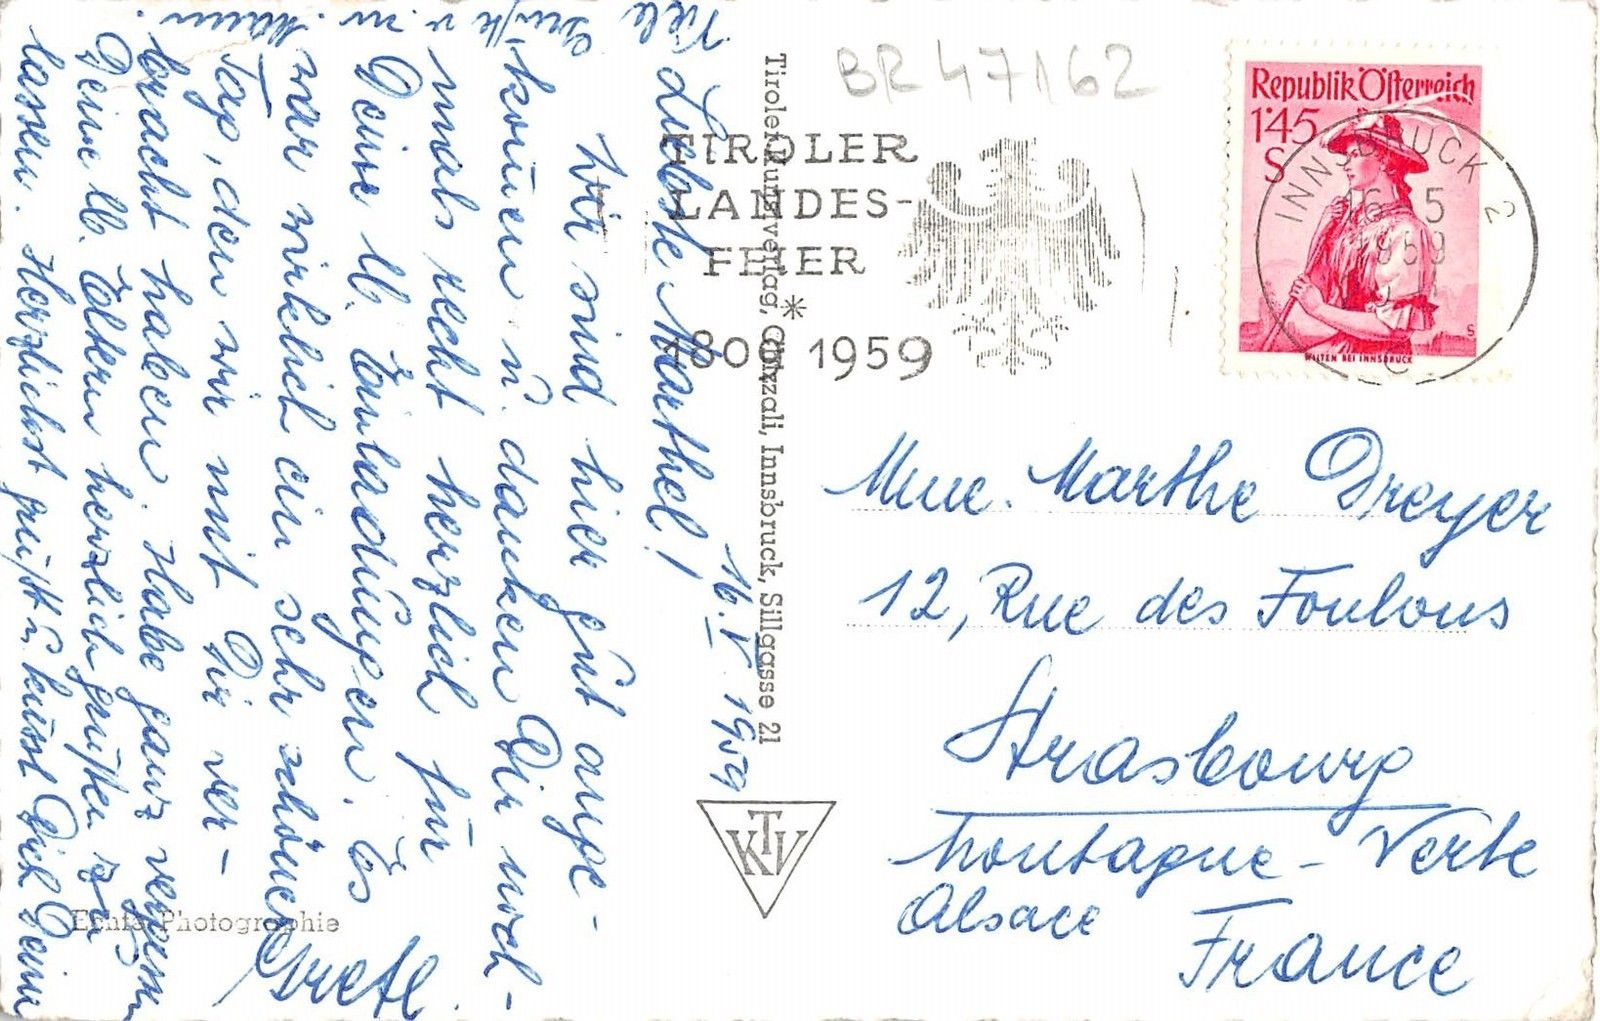 BR 47162
TIROLER
LANDES-
FEIER
*
1809 1959
Republik Österreich
1'45
S
WILTEN BEI INNSBRUCK
INNSBRUCK 2
16. 5
1959
Tiroler Kunstverlag, Chizzali, Innsbruck, Sillgasse 21
KTV
Echte Photographie
16. V. 1959
Liebste Marthel!
Wir sind hier gut ange-
kommen u. danken Dir noch-
mals recht herzlich für
Deine lb. Einladungen. Es
war wirklich ein sehr schöner
Tag, den wir mit Dir ver-
bracht haben. Habe ganz vergessen
Deine lb. Eltern herzlich grüßen zu
lassen. Herzlichst grüßt u. küsst Dich Deine
Gretl.
Viele
Grüße v. m.
Mann.
Mme. Marthe Dreyer
12, Rue des Foulons
Strasbourg
Montagne-Verte
Alsace
France